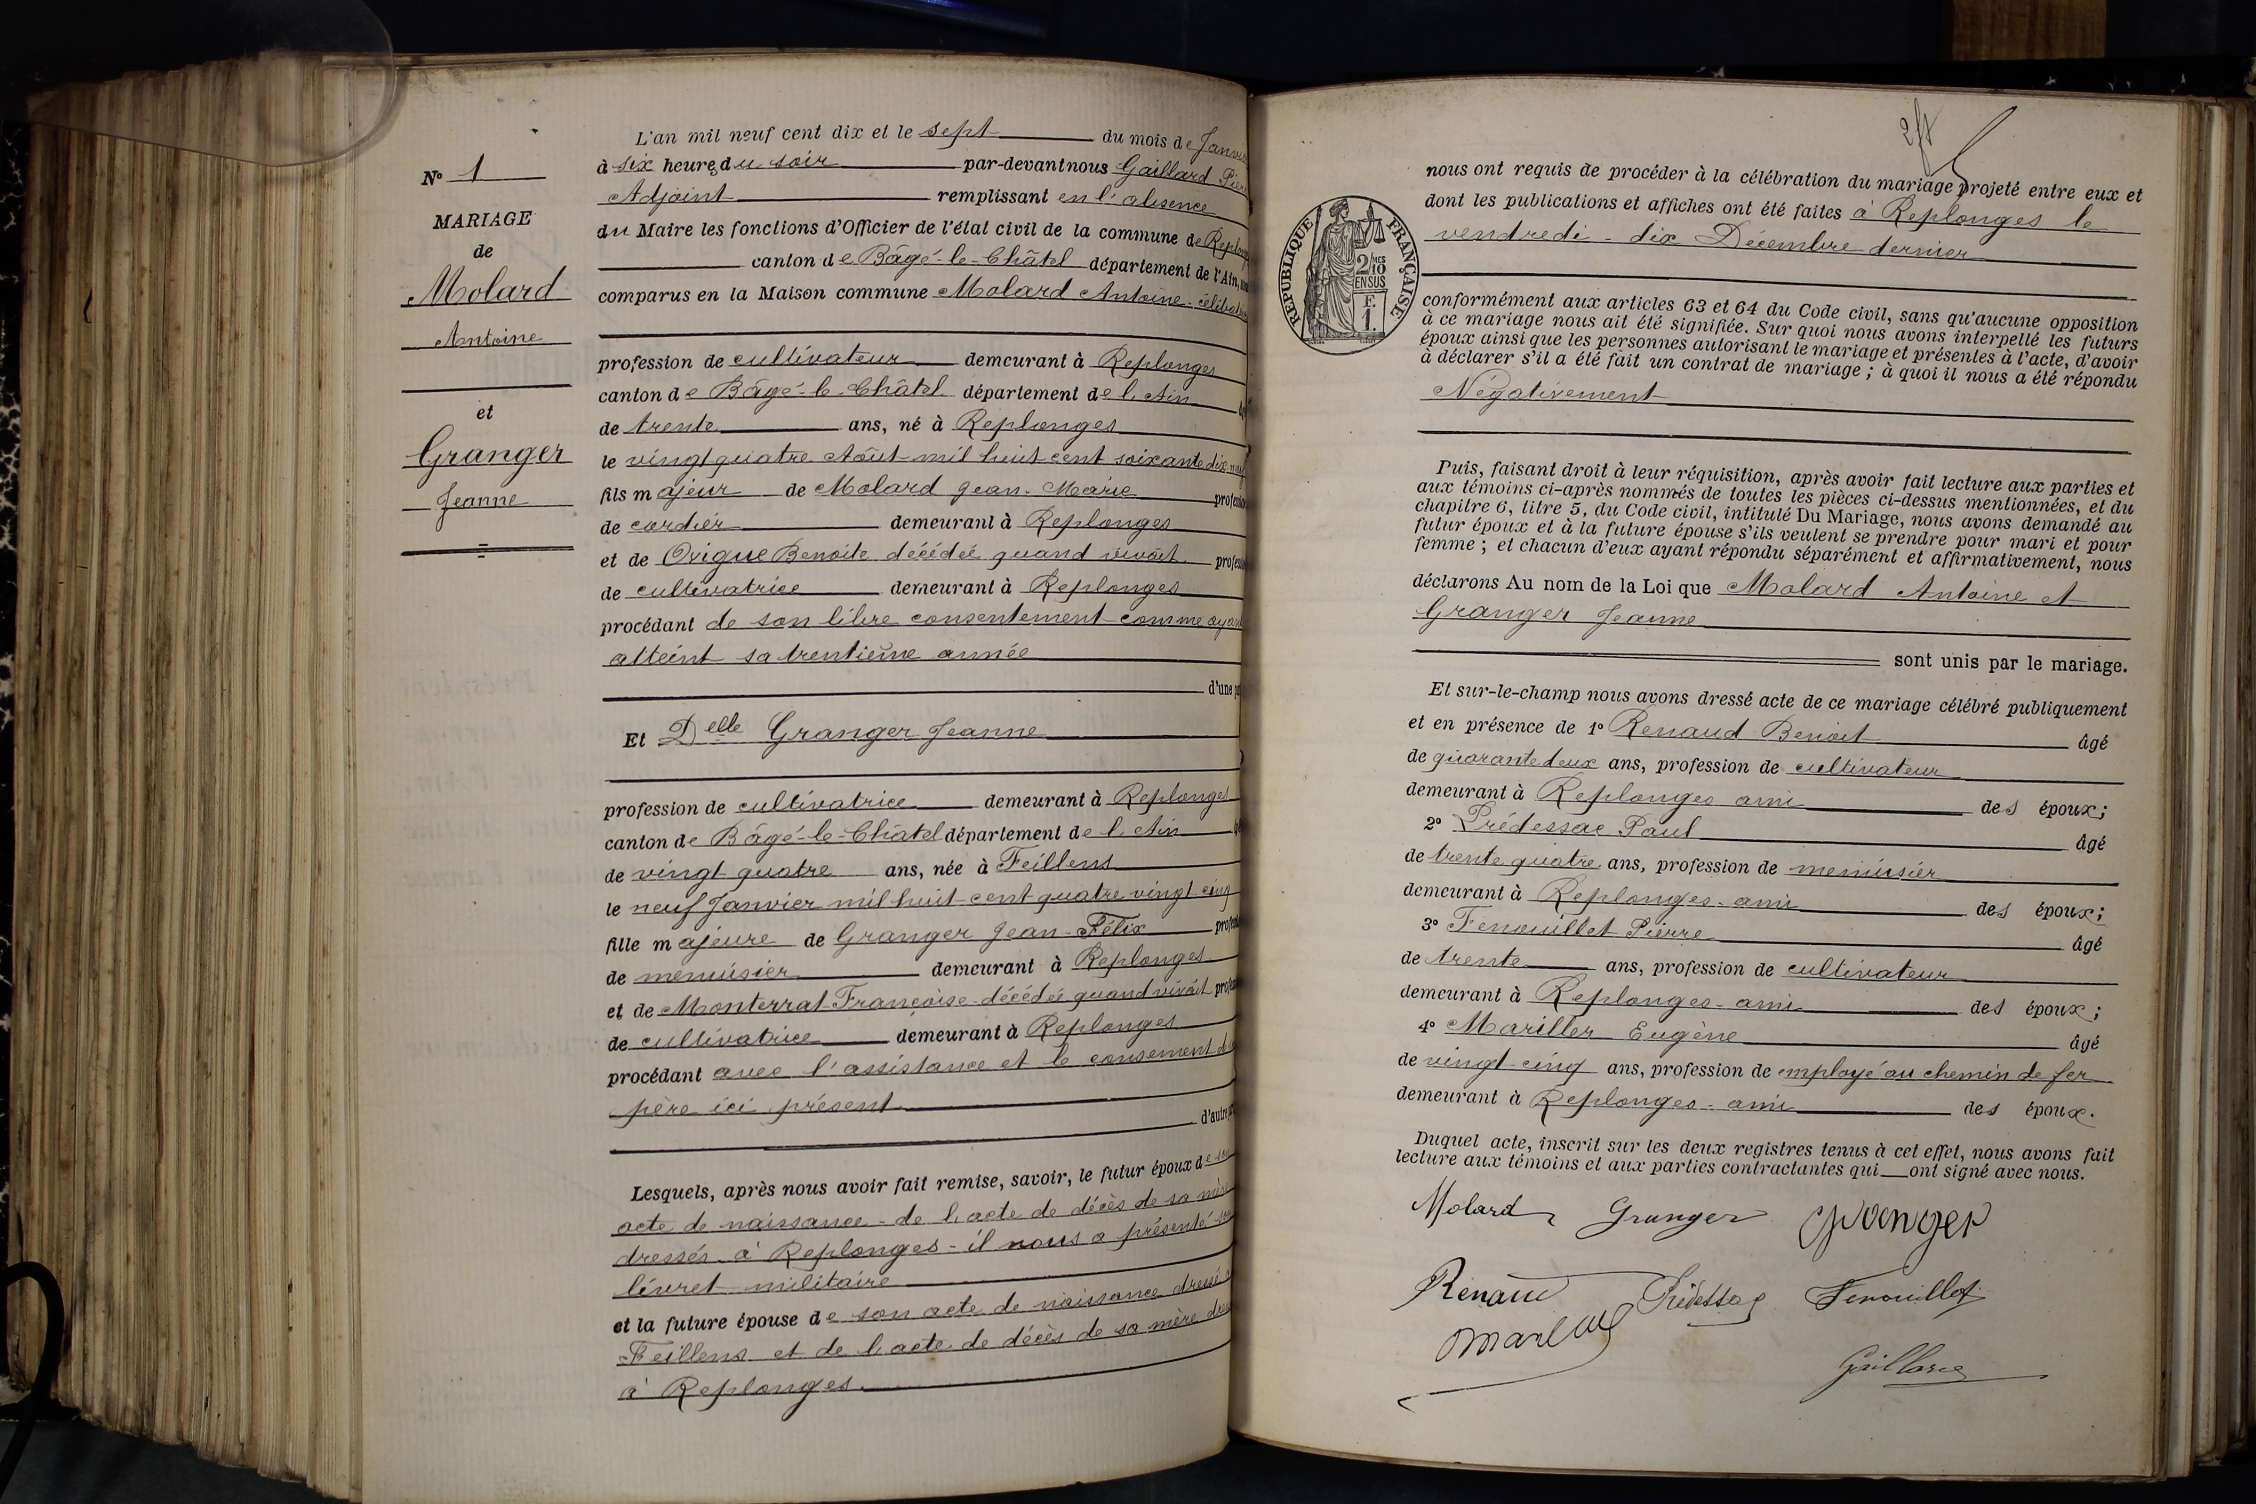 N° 1
MARIAGE
de
Molard
Antoine
et
Granger
Jeanne
L'an mil neuf cent dix et le sept du mois de Janvi
à six heures du soir par-devant nous Gaillard Pierre
Adjoint remplissant en l'absence
du Maire les fonctions d'Officier de l'état civil de la commune de Replong
canton de Bâgé-le-Châtel département de l'Ain,
comparus en la Maison commune Molard Antoine - célibataire
profession de cultivateur demeurant à Replonges
canton de Bâgé-le-Châtel département de l'Ain
de trente ans, né à Replonges
le vingt quatre Août mil huit cent soixante dix neuf
fils majeur de Molard Jean-Marie profession
de cordier demeurant à Replonges
et de Ovigue Benoite décédée quand vivait profession
de cultivatrice demeurant à Replonges
procédant de son libre consentement comme ayant
atteint sa trentième année
d'une pa
Et Delle Granger Jeanne
profession de cultivatrice demeurant à Replonges
canton de Bâgé-le-Châtel département de l'Ain
de vingt quatre ans, née à Feillens
le neuf Janvier mil huit cent quatre vingt cinq
fille majeure de Granger Jean-Félix profes
de menuisier demeurant à Replonges
et de Monterrat Françoise décédée quand vivait profes
de cultivatrice demeurant à Replonges
procédant avec l'assistance et le consement de
père ici présent
d'autre
Lesquels, après nous avoir fait remise, savoir, le futur époux de son
acte de naissance - de l'acte de décès de sa mère
dressés à Replonges - il nous a présenté son
livret militaire
et la future épouse de son acte de naissance dressé à
Feillens et de l'acte de décès de sa mère
à Replonges
nous ont requis de procéder à la célébration du mariage projeté entre eux et
dont les publications et affiches ont été faites à Replonges le
vendredi - dix Décembre dernier
RÉPUBLIQUE FRANÇAISE
2/10 MES
EN SUS
F.
1.
conformément aux articles 63 et 64 du Code civil, sans qu'aucune opposition
à ce mariage nous ait été signifiée. Sur quoi nous avons interpellé les futurs
époux ainsi que les personnes autorisant le mariage et présentes à l'acte, d'avoir
à déclarer s'il a été fait un contrat de mariage ; à quoi il nous a été répondu
Négativement
Puis, faisant droit à leur réquisition, après avoir fait lecture aux parties et
aux témoins ci-après nommés de toutes les pièces ci-dessus mentionnées, et du
chapitre 6, titre 5, du Code civil, intitulé Du Mariage, nous avons demandé au
futur époux et à la future épouse s'ils veulent se prendre pour mari et pour
femme ; et chacun d'eux ayant répondu séparément et affirmativement, nous
déclarons Au nom de la Loi que Molard Antoine et
Granger Jeanne
sont unis par le mariage.
Et sur-le-champ nous avons dressé acte de ce mariage célébré publiquement
et en présence de 1° Renaud Benoit âgé
de quarante deux ans, profession de cultivateur
demeurant à Replonges ami des époux ;
2° Prédessac Paul âgé
de trente quatre ans, profession de menuisier
demeurant à Replonges - ami des époux ;
3° Fenouillet Pierre âgé
de trente ans, profession de cultivateur
demeurant à Replonges - ami des époux ;
4° Mariller Eugène âgé
de vingt cinq ans, profession de employé au chemin de fer
demeurant à Replonges - ami des époux.
Duquel acte, inscrit sur les deux registres tenus à cet effet, nous avons fait
lecture aux témoins et aux parties contractantes qui ont signé avec nous.
Molard Granger Granger
Renaud Prédessac Fenouillet
Gaillard